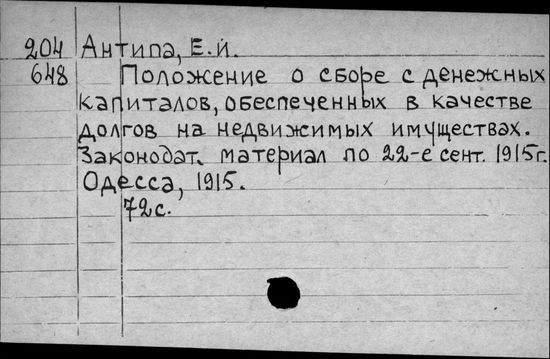 204 Антипа, Е.И.
648 Положение о сборе с денежных
капиталов, обеспеченных в качестве
долгов на недвижимых имуществах.
Законодат. материал по 22-е сент. 1915г.
Одесса, 1915.
72с.